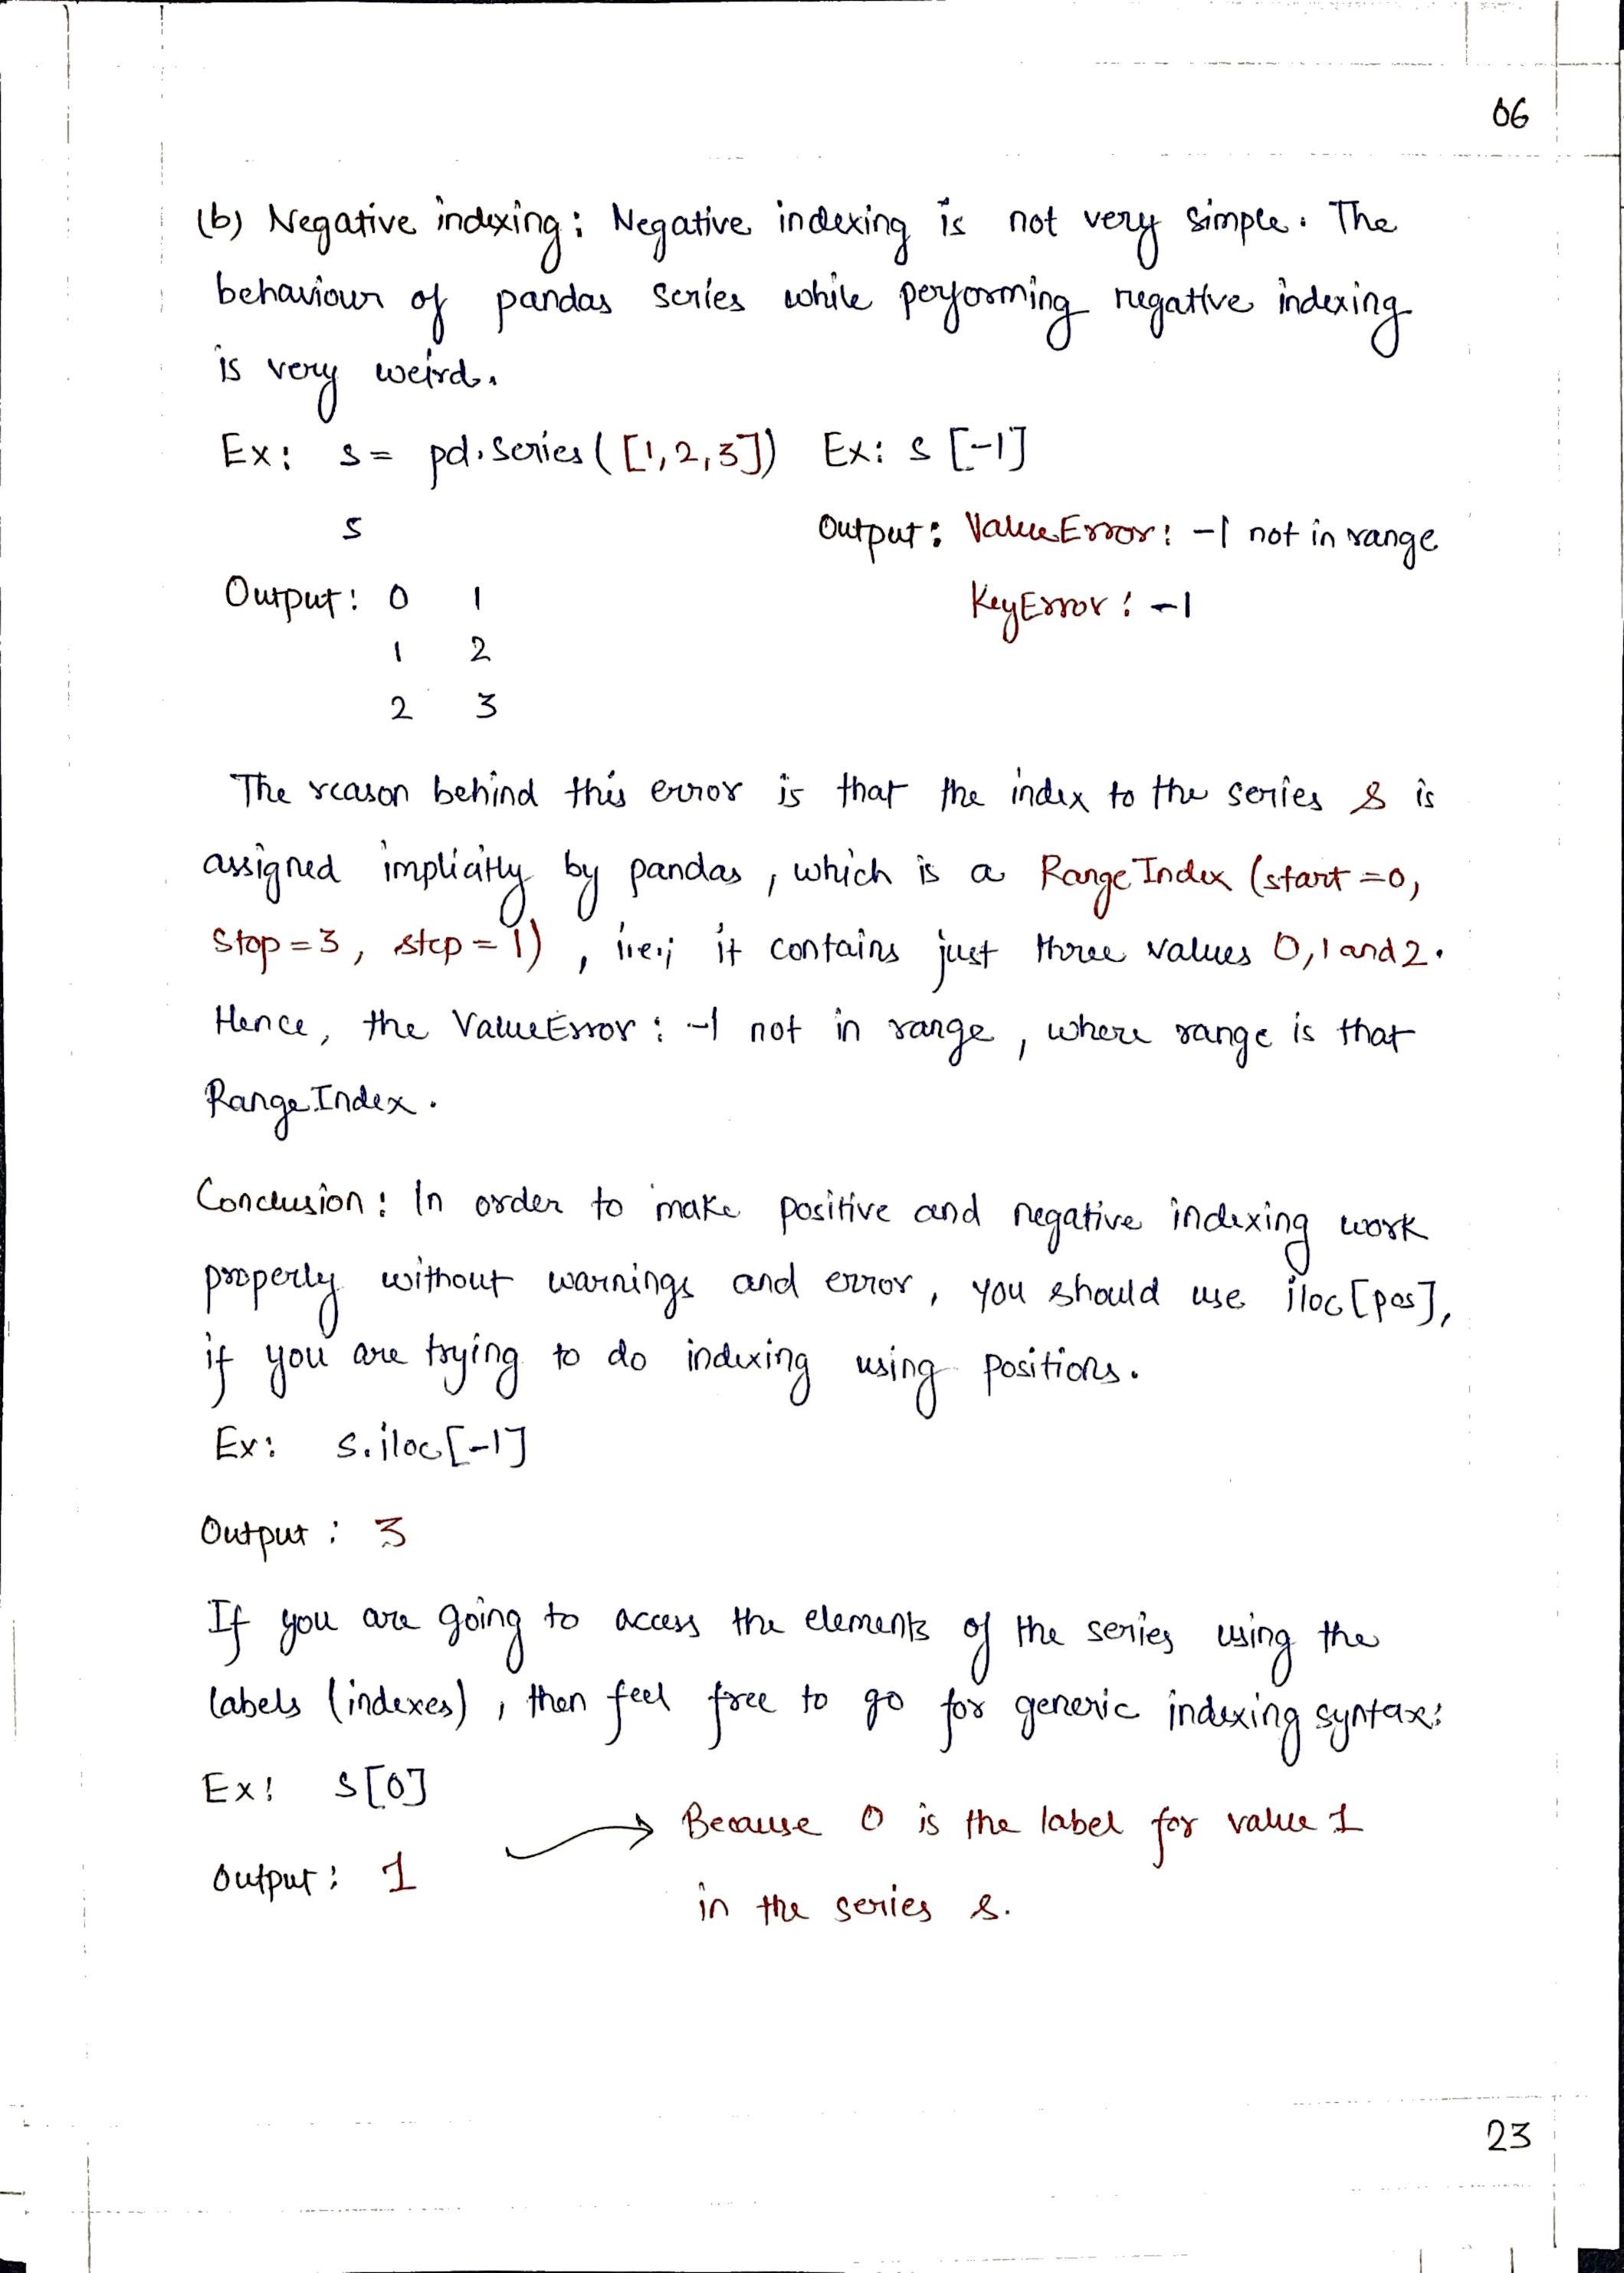 06
(b) Negative indexing: Negative indexing is not very simple. The
behaviour of pandas series while performing negative indexing
is very weird.
Ex: s = pd.Series([1,2,3]) Ex: s[-1]
s
Output: ValueError: -1 not in range
Output: 0 1
KeyError: -1
1 2
2 3
The reason behind this error is that the index to the series s is
assigned implicitly by pandas, which is a RangeIndex (start=0,
stop=3, step=1), i.e., it contains just three values 0,1 and 2.
Hence, the ValueError: -1 not in range, where range is that
RangeIndex.
Conclusion: In order to make positive and negative indexing work
properly without warnings and error, you should use iloc[pos],
if you are trying to do indexing using positions.
Ex: s.iloc[-1]
Output: 3
If you are going to access the elements of the series using the
labels (indexes), then feel free to go for generic indexing syntax:
Ex: s[0]
Because 0 is the label for value 1
Output: 1
in the series s.
23